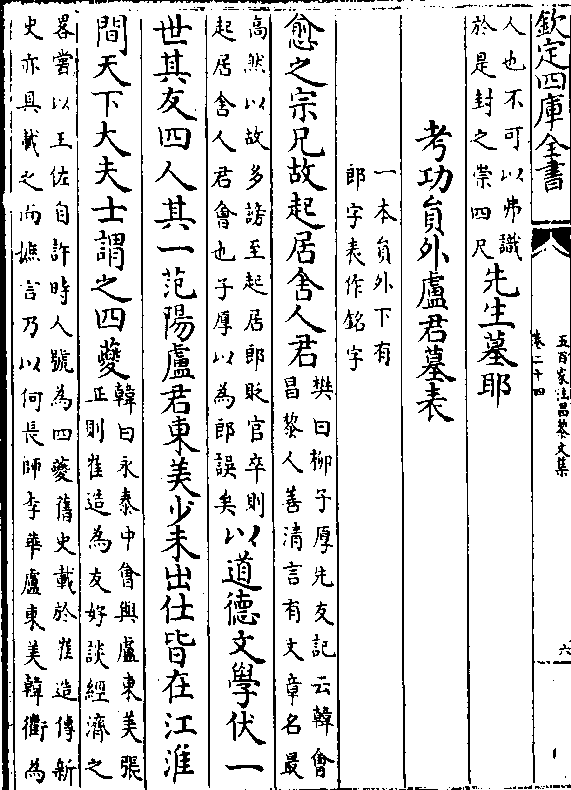 欽定四庫全書
五百家注昌黎文集
卷二十四
六
人也不可以弗識
於是封之崇四尺
先生墓耶
考功員外盧君墓表
一本員外下有
郎字表作銘字
愈之宗兄故起居舍人君
樊曰柳子厚先友記云韓會
昌黎人善清言有文章名最
高然以故多謗至起居郎貶官卒則
起居舍人君會也子厚以為郎誤矣
以道德文學伏一
世其友四人其一范陽盧君東美少未出仕皆在江淮
間天下大夫士謂之四夔
韓曰永泰中會與盧東美張
正則崔造為友好談經濟之
畧嘗以王佐自許時人號為四夔舊史載於崔造傳新
史亦具載之而譙言乃以何長師李華盧東美韓衢為